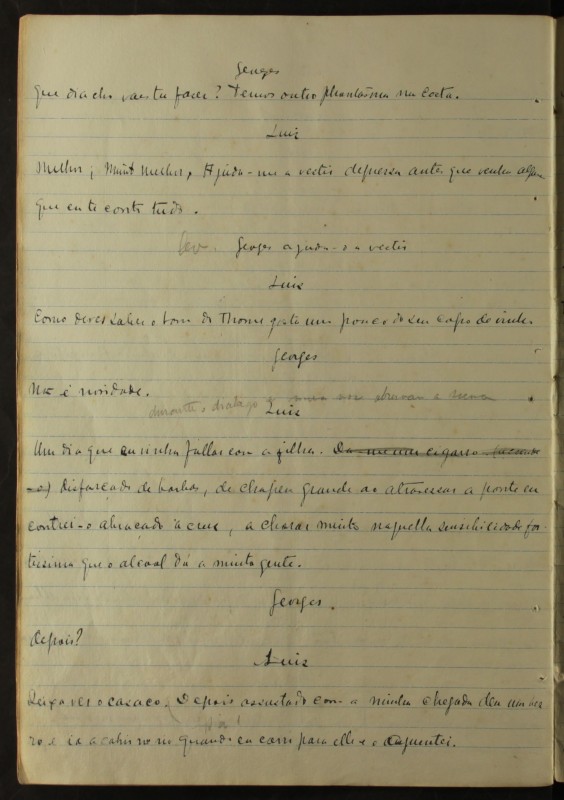 Georges
Que diacho vaes tu fazer? Temos outro phantasma na costa.
Luiz
Melhor, muito melhor. Ajuda-me a vestir depressa antes que venha alguem
que eu te conto tudo.
Georges ajuda-o a vestir
Luiz
Como deves saber o bom do Thomé gosta um pouco do seu copo de vinho.
Georges
Não é novidade.
durante o dialogo
Luiz
Um dia que eu vinha fallar com a filha. Da-me um cigarro
disfarçado de barbas, de chapeu grande ao atravessar a ponte en
contrei-o abraçado á cruz, a chorar muito naquella sensibilidade for-
tissima que o alcool dá a muita gente.
Georges.
depois?
Luiz
Deixa ver o casaco. Depois assustado com a minha chegada deu um ber
ro e ia a cahir no rio quando eu corri para elle e o aguentei.